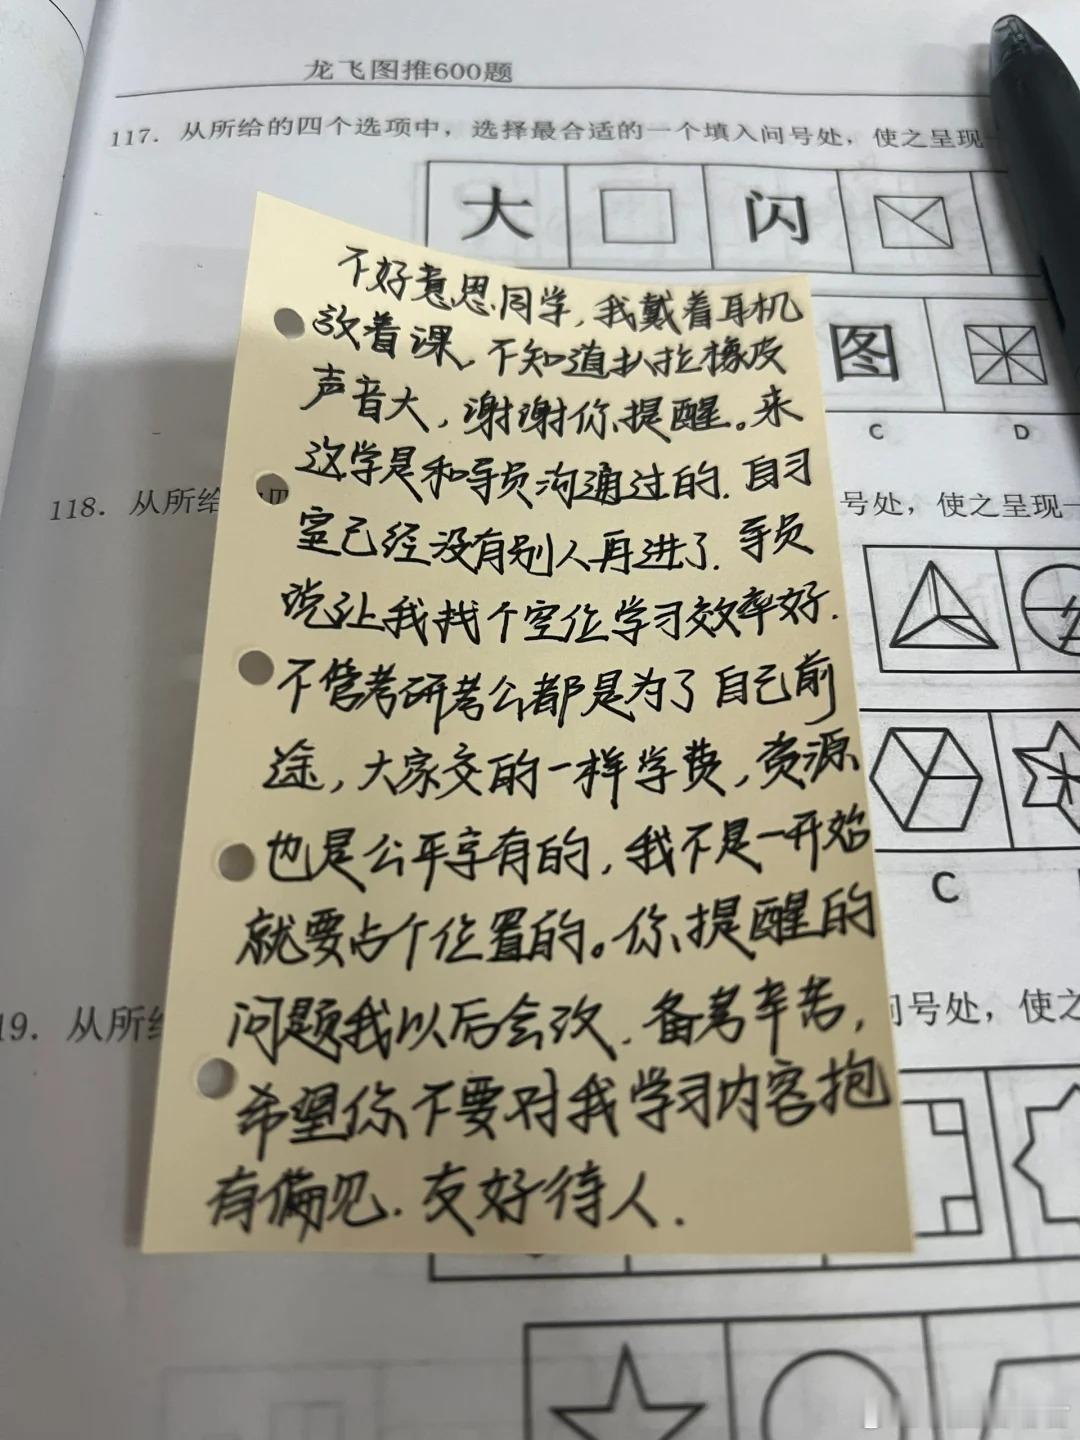 龙飞图推600题
117. 从所给的四个选项中，选择最合适的一个填入问号处，使之呈现一
大
闪
不好意思同学，我戴着耳机
放着课，不知道扒拉橡皮
声音大，谢谢你提醒。来
这学是和导员沟通过的．自习
室已经没有别人再进了．导员
说让我找个空位学习效率好．
不管考研考公都是为了自己前
途，大家交的一样学费，资源
也是公平享有的，我不是一开始
就要占个位置的。你提醒的
问题我以后会改．备考辛苦，
希望你不要对我学习内容抱
有偏见．友好待人．
图
C
D
118. 从所给
号处，使之呈现一
C
19. 从所给
问号处，使之